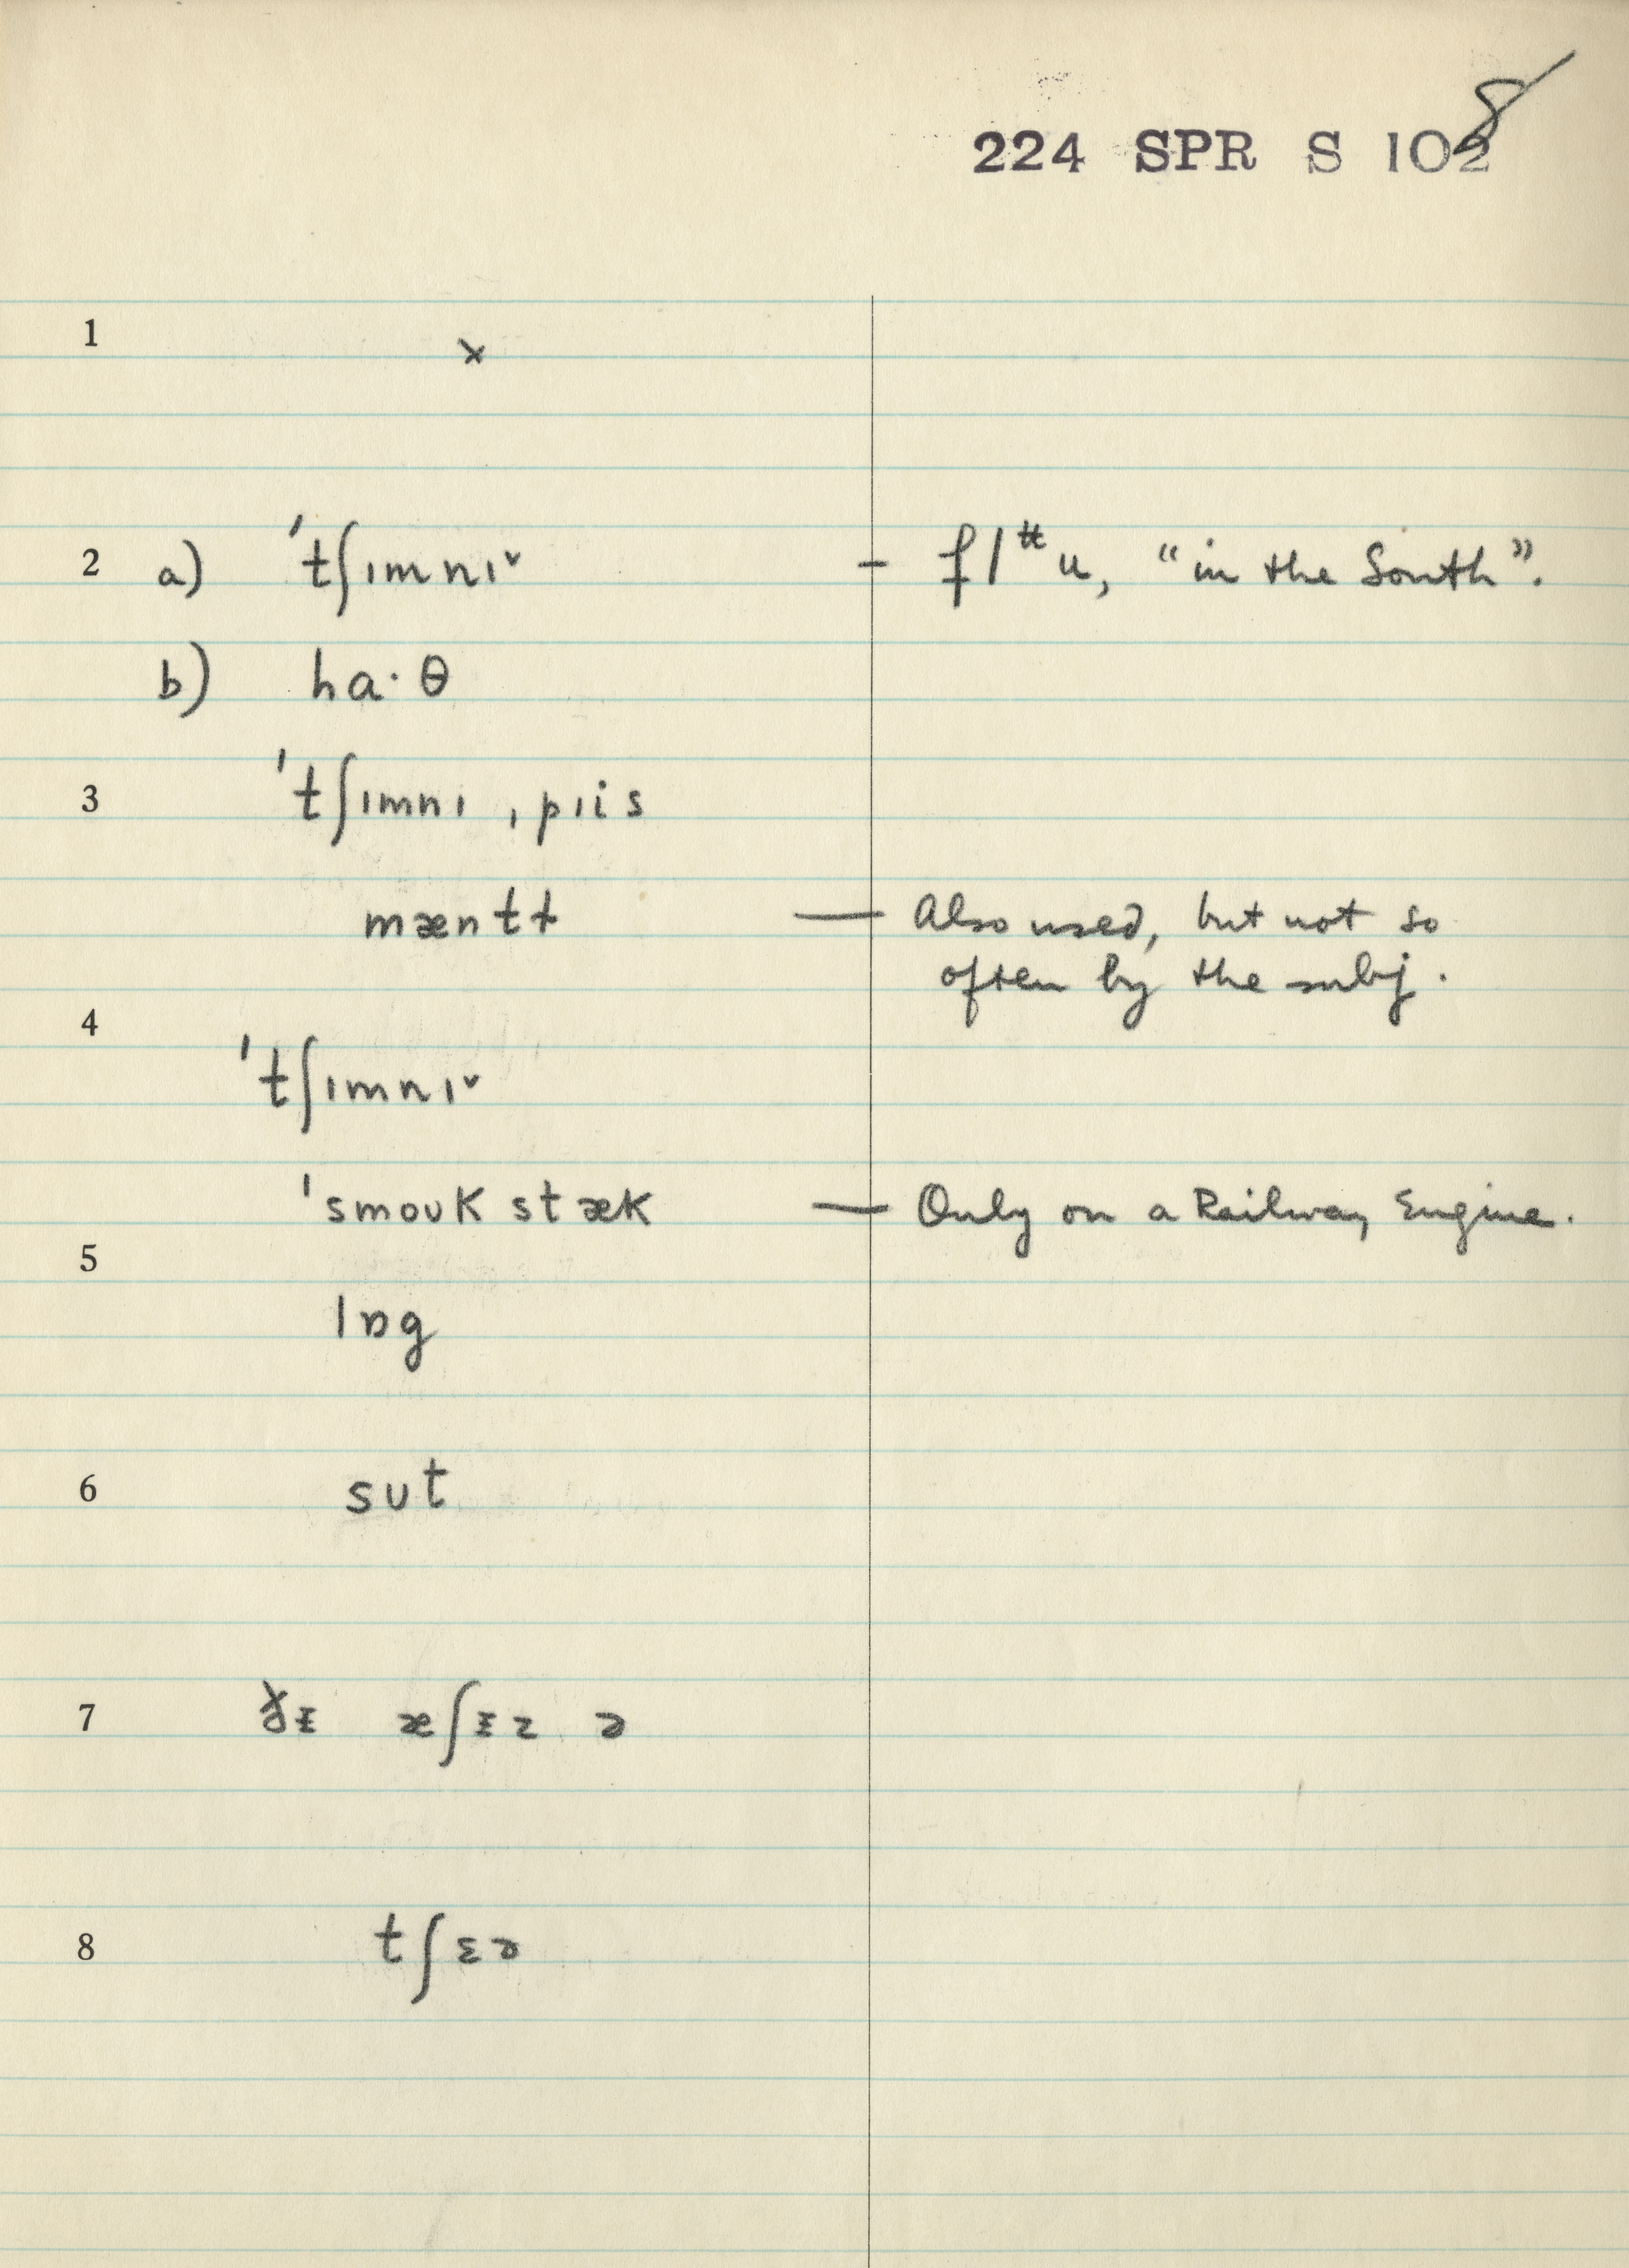 224 SPR S 108
1 ×
2 a) ˈtʃɪmnɪ˅ – f/tt u, “in the South”.
b) ha·θ
3 ˈtʃɪmnɪ ˌpɪis
mæntɫ — Also used, but not so
often by the subj.
4
ˈtʃɪmnɪ˅
ˈsmoʊk stæk — Only on a Railway Engine.
5
lɒg
6 sut
7 æʃɪz ə
8 tʃɛə